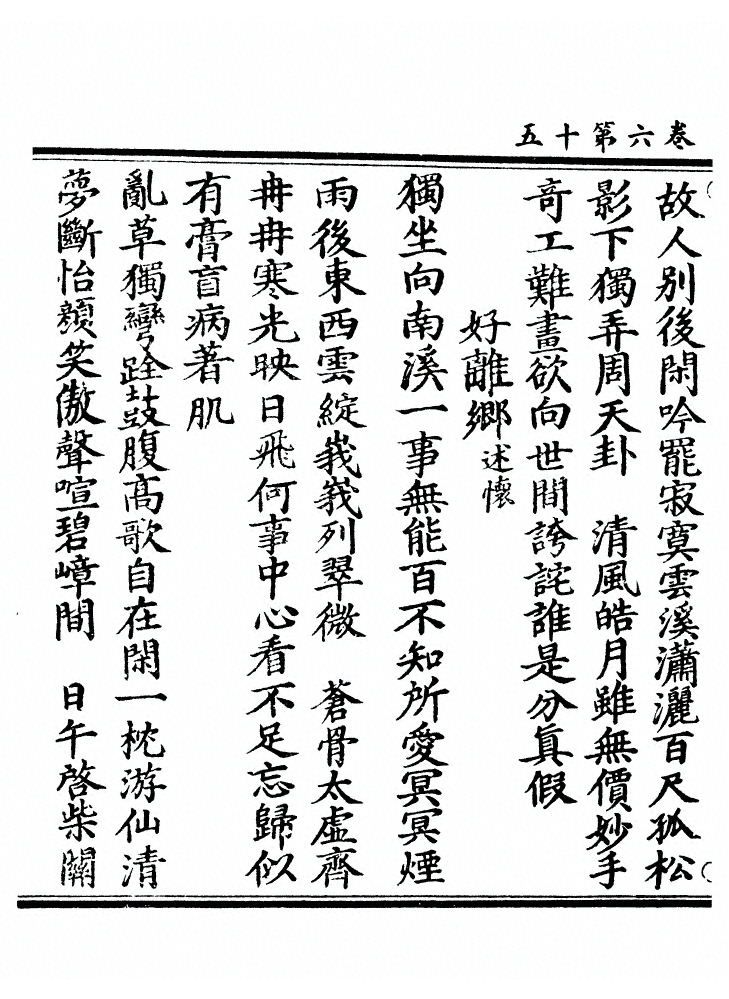 卷六第十五
故人別後閑吟罷寂寞雲溪瀟灑百尺孤松
影下獨弄周天卦　清風皓月雖無價妙手
奇工難畫欲向世間誇詫誰是分真假
好離鄉述懷
獨坐向南溪一事無能百不知所愛冥冥煙
雨後東西雲綻峩峩列翠微　蒼骨太虛齊
冉冉寒光映日飛何事中心看不足忘歸似
有膏盲病著肌
亂草獨彎跧鼓腹高歌自在閑一枕游仙清
夢斷怡顏笑傲聲喧碧嶂間　日午啓柴關